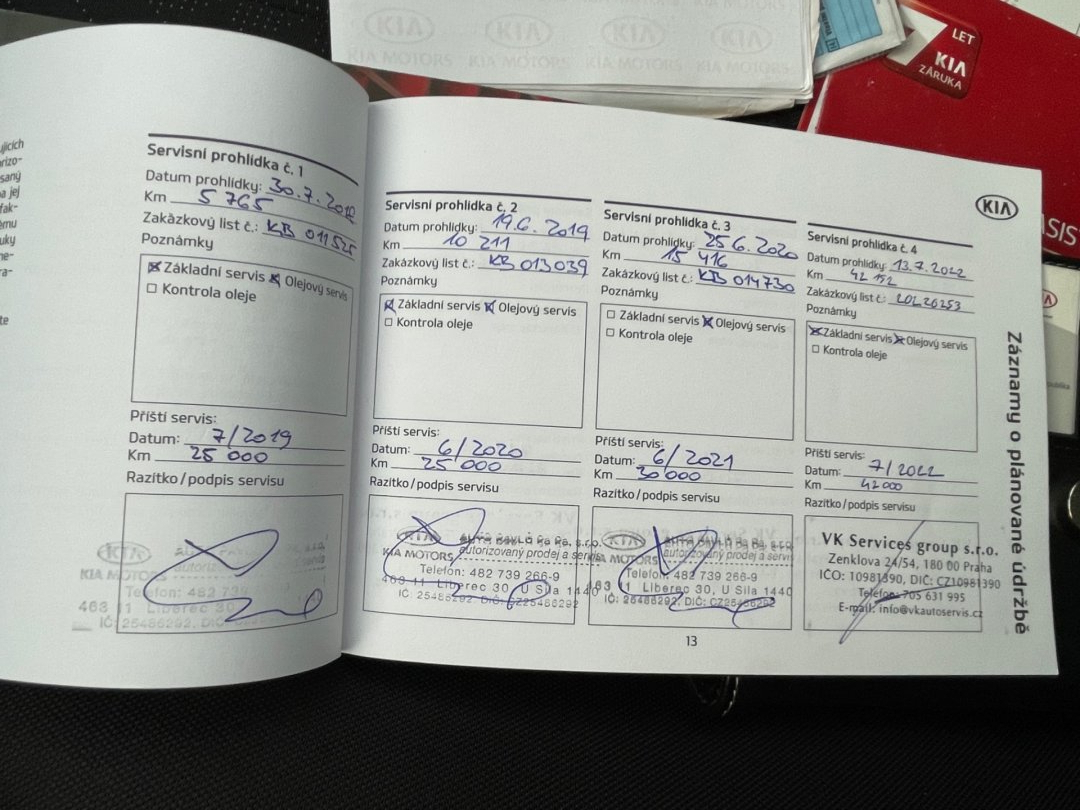 KIA
KIA
KIA
KIA
KIA MOTORS
KIA MOTORS
KIA MOTORS
KIA MOTORS
LET
KIA
ZÁRUKA
KIA
Servisní prohlídka č. 1
Datum prohlídky: 30.7.2018
Km 5 765
Zakázkový list č.: KB 011525
Poznámky
Základní servis Olejový servis
Kontrola oleje
Příští servis:
Datum: 7/2019
Km 25 000
Razítko/podpis servisu
KIA
KIA MOTORS
Telefon: 482 739
463 11 Liberec 30, U Sila
IČ: 25486292, DIČ: CZ25486292
Servisní prohlídka č. 2
Datum prohlídky: 19.6.2019
Km 10 211
Zakázkový list č.: KB 013039
Poznámky
Základní servis Olejový servis
Kontrola oleje
Příští servis:
Datum: 6/2020
Km 25 000
Razítko/podpis servisu
KIA
KIA MOTORS
autorizovaný prodej a servis
Telefon: 482 739 266-9
463 11 Liberec 30, U Sila 1440
IČ: 25486292, DIČ: CZ25486292
Servisní prohlídka č. 3
Datum prohlídky: 25 6. 2020
Km 15 416
Zakázkový list č.: KB 014730
Poznámky
Základní servis Olejový servis
Kontrola oleje
Příští servis:
Datum: 6/2021
Km 30 000
Razítko/podpis servisu
KIA
KIA MOTORS
autorizovaný prodej a servis
Telefon: 482 739 266-9
463 11 Liberec 30, U Sila 1440
IČ: 25486292, DIČ: CZ25486292
Servisní prohlídka č. 4
Datum prohlídky: 13.7.2022
Km 42 152
Zakázkový list č.: 20220253
Poznámky
Základní servis Olejový servis
Kontrola oleje
Příští servis:
Datum: 7/2022
Km 42 000
Razítko/podpis servisu
VK Services group s.r.o.
Zenklova 24/54, 180 00 Praha
IČO: 10981390, DIČ: CZ10981390
Telefon: 705 631 995
E-mail: info@vkautoservis.cz
Záznamy o plánované údržbě
13